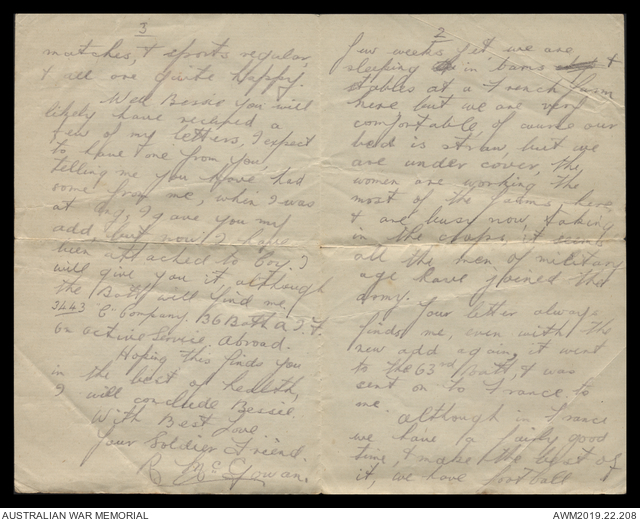 2
few weeks yet, we are
sleeping in barns &
stables at a French farm
here but we are very
comfortable, of course our
bed is straw, but we
are under cover, the
women are working the
most of the farms, here
& are busy now, taking
in the crops, it
all the men of military
age have joined the
army.
Your letter always
finds me, even with the
new add again, it went
to the 63rd Batt, & was
sent on to France to
me.
Although in France
we have a fairly good
time, & make the best of
it, we have football
3
matches, & sports regular,
& all are quite happy.
Well Bessie you will
likely have received a
few of my letters, I expect
to have one from you
telling me you have had
some from me, when I was
at I gave you my
add but now I have
been attached to Coy. I
will give you it, although
the Batt will find me,
3443 C. Company. 36 Batt A.I.F.
On active service, abroad.
Hoping this finds you
in the best of health,
I will conclude Bessie
With Best Love
Your Soldier Friend.
R McGowan.
AUSTRALIAN WAR MEMORIAL
AWM2019.22.208